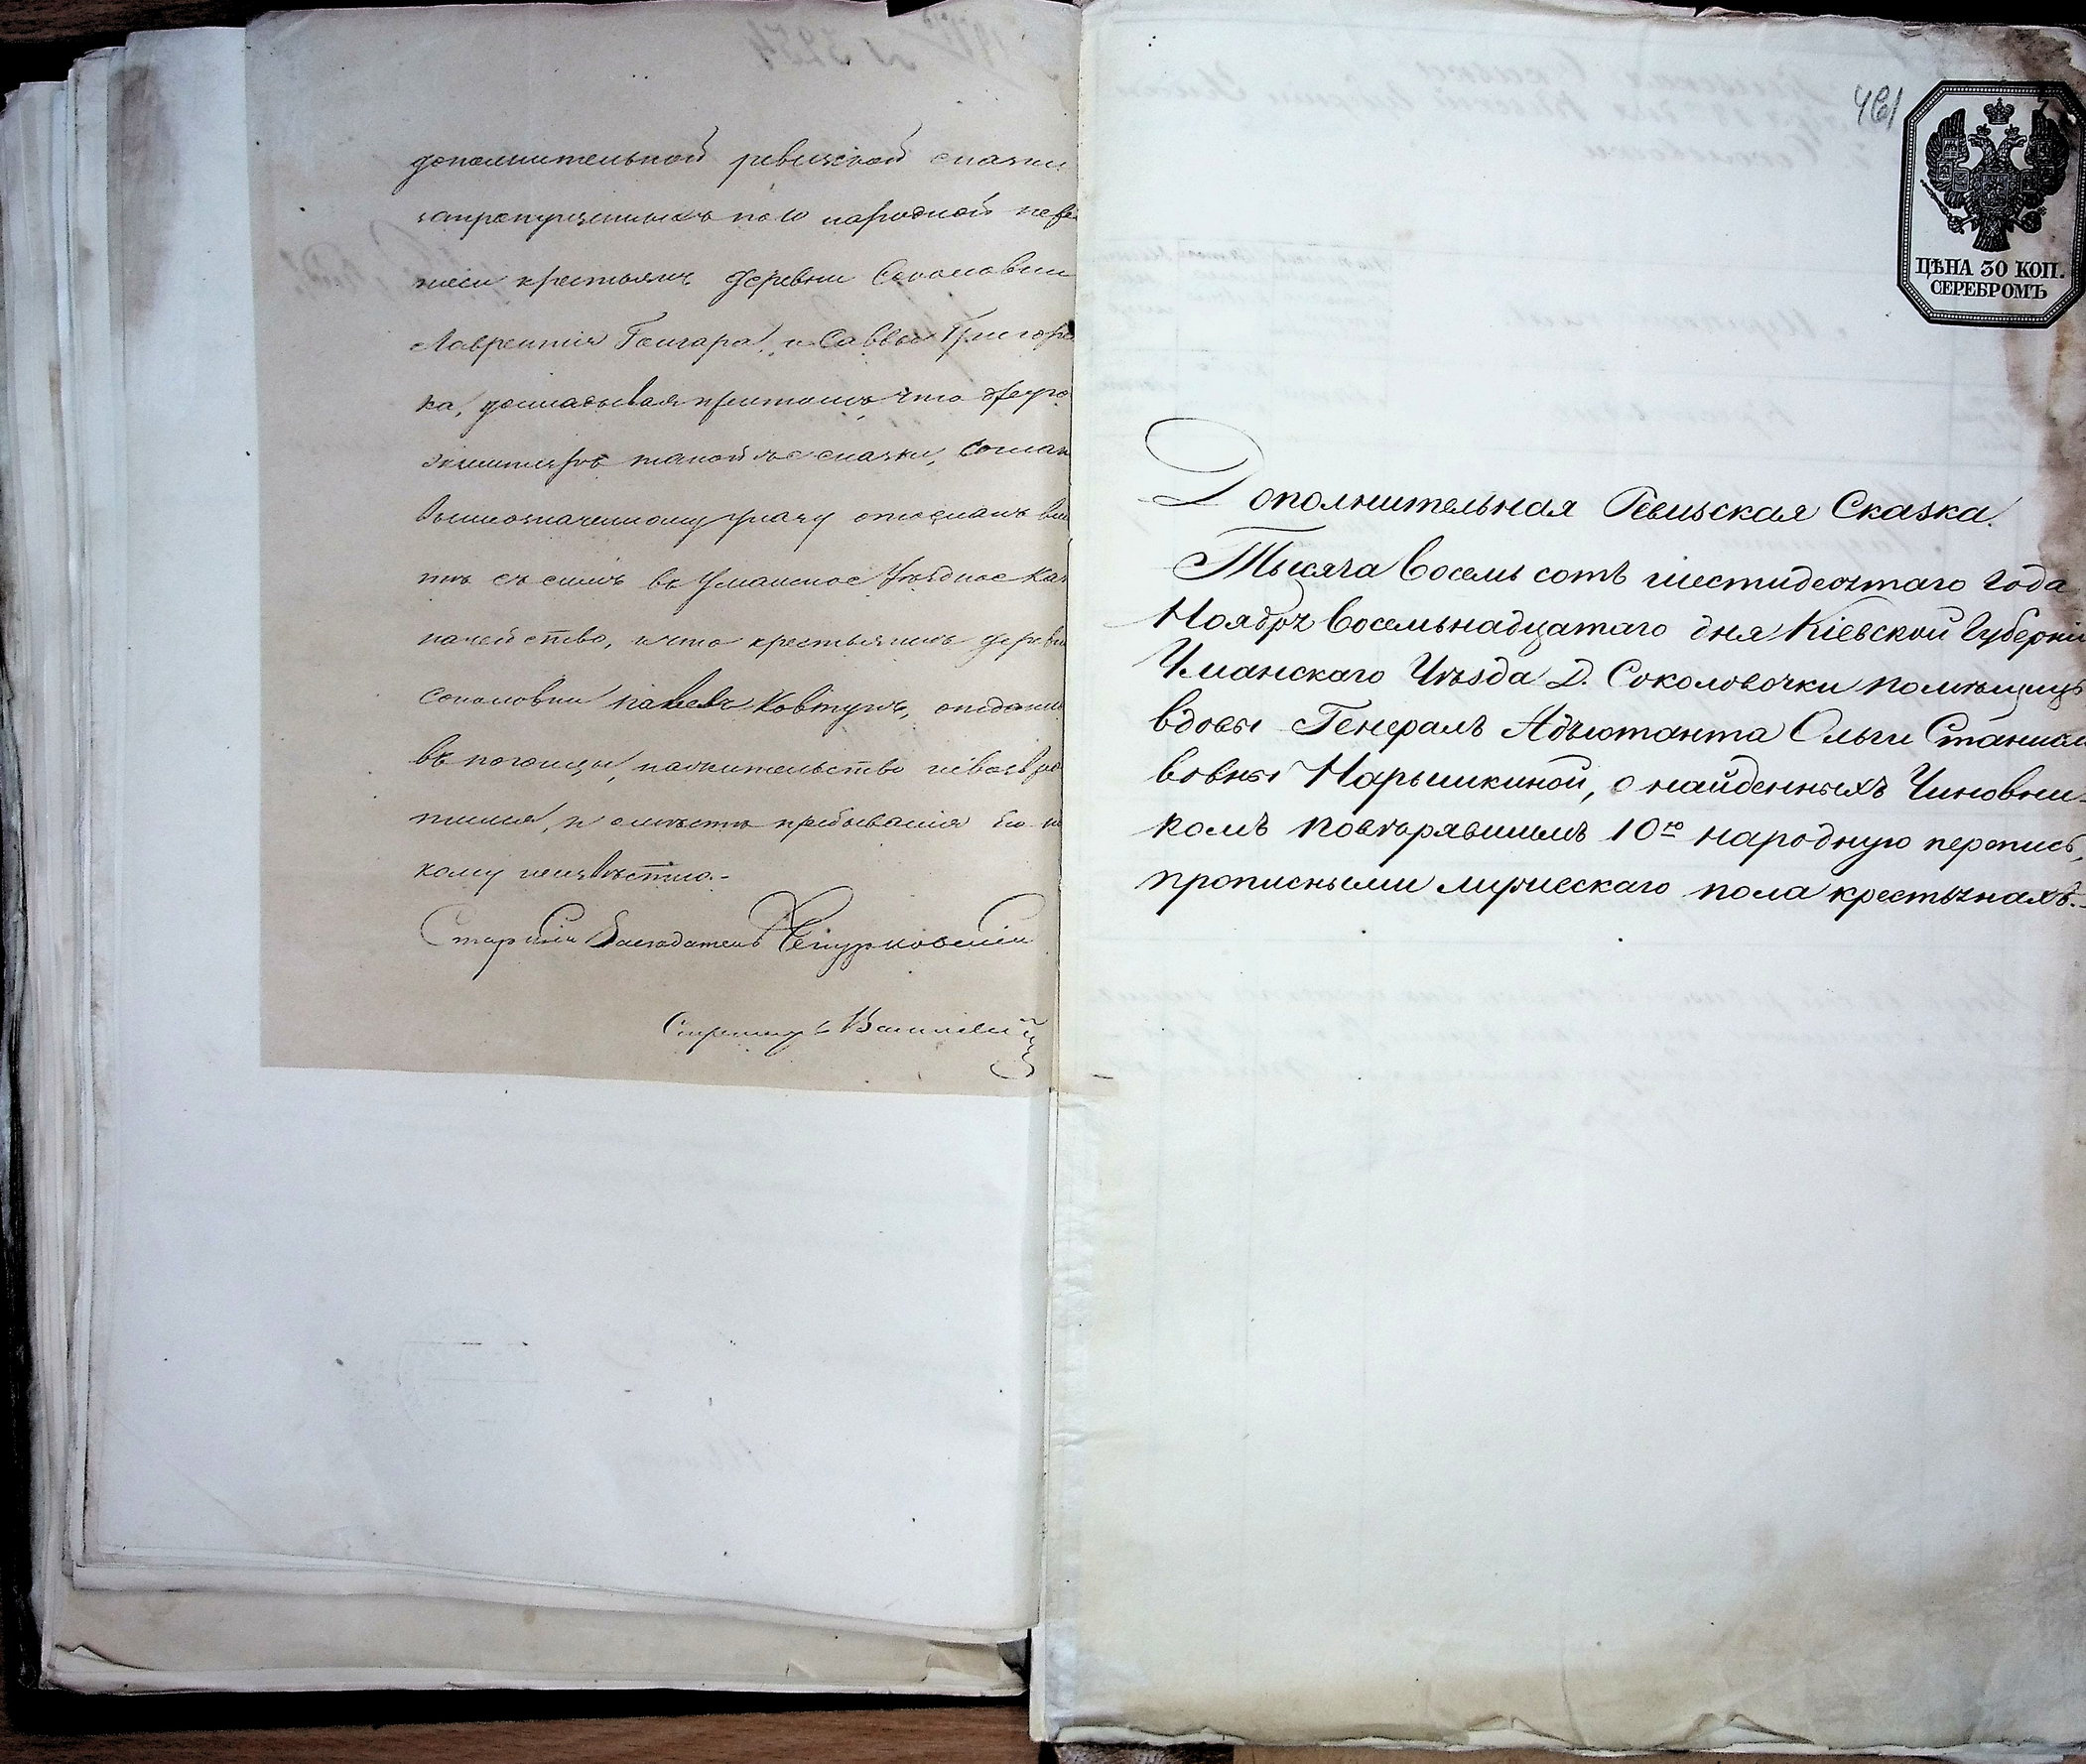 дополнительной ревизской сказки
запропущенныхъ по 10 народной пере
писи крестьянъ деревни Соколовки
Лаврентія Гончара, и Саввы Григорь
ка, докладывая притомъ, что другой
экземпляръ такой же сказки, соглас
вышеозначенному указу отосланъ вмѣ
тѣ съ симъ въ Уманское Уѣздное Каз
начейство, и что крестьянинъ деревни
Соколовки Павелъ Ковтунъ, отданный
въ погонцы, на жительство невозвра
тился, и о мѣстѣ пребыванія его ни
кому неизвѣстно.-
Старшій Засѣдатель
Секретарь
461
ЦѢНА 30 КОП.
СЕРЕБРОМЪ
Дополнительная Ревизская Сказка.
Тысяча восемь сотъ шестидесятаго года
Ноября восемьнадцатаго дня Кіевской Губерніи
Уманскаго Уѣзда Д. Соколовочки помѣщицы
вдовы Генералъ Адъютанта Ольги Станисла
вовны Нарышкиной, о найденныхъ Чиновни-
комъ повторявшимъ 10ю народную перепись,
прописными мужескаго пола крестьянахъ.-